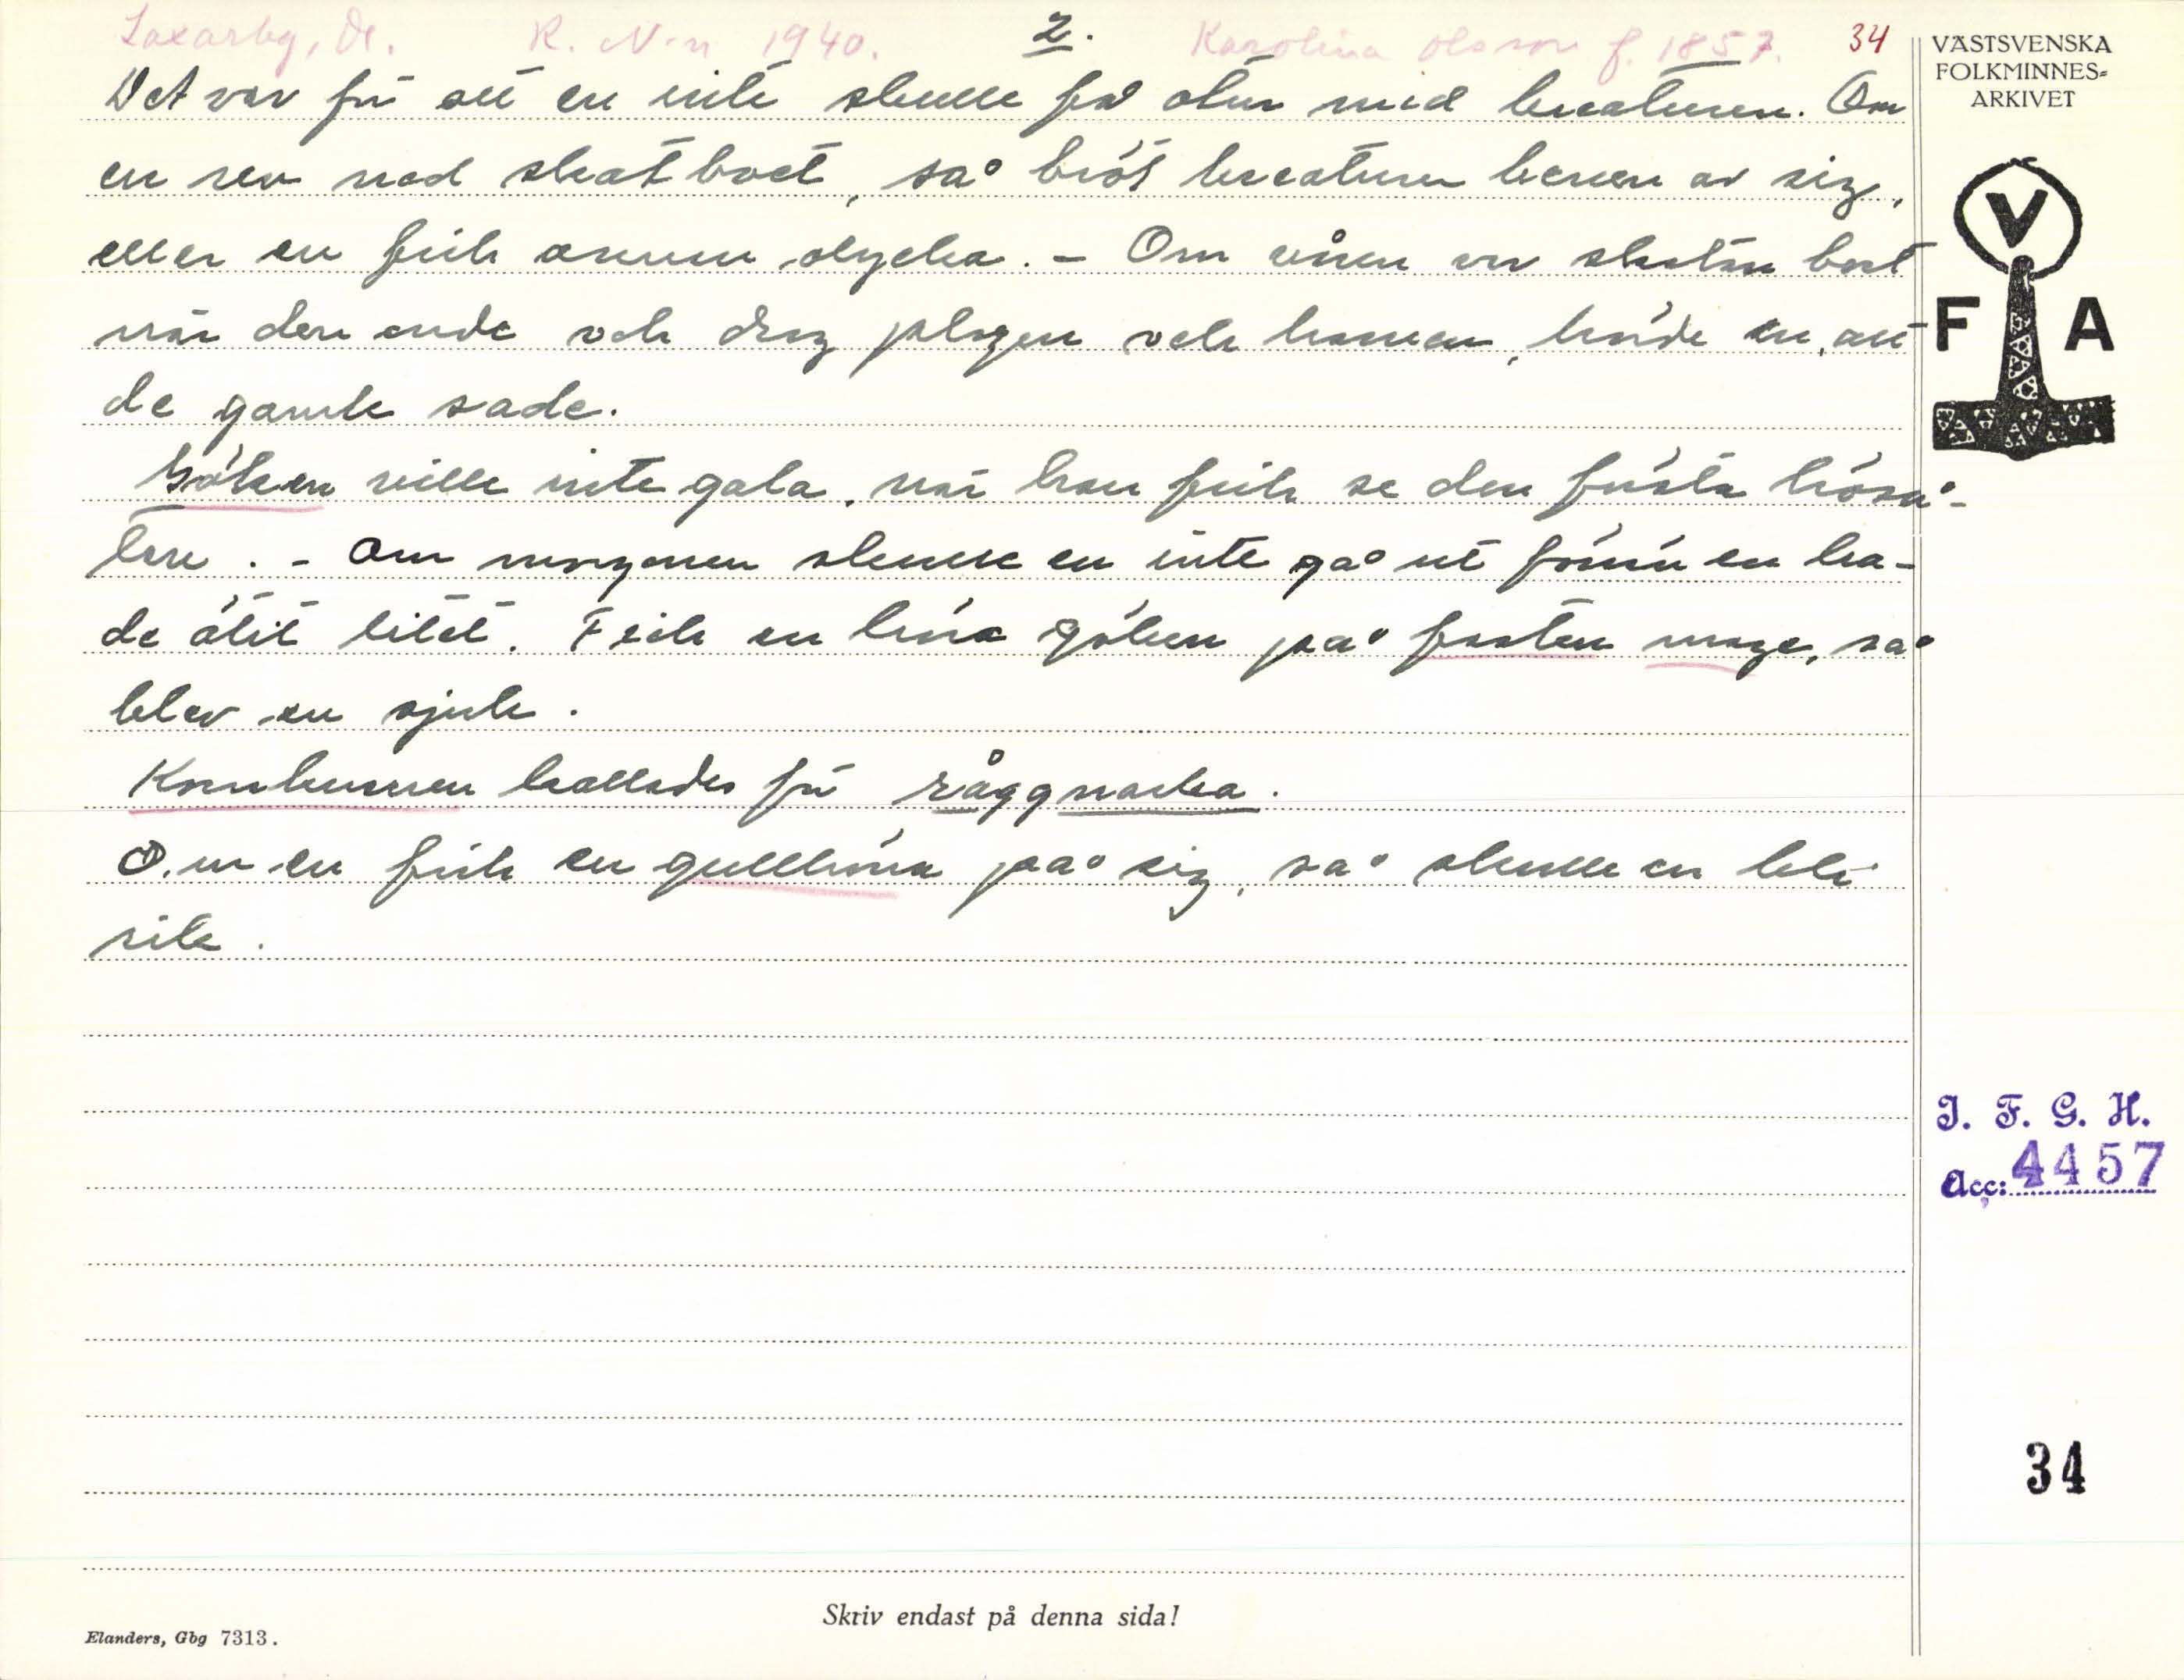 Laxarby, Dl. R. N-n 1940. 2. Karolina Olsson f. 1857. 34
Det var för att en inte skulle få otur med kreaturen. Om
en rev ned skatboet, så bröt kreaturen benen av sig,
eller en fick annan olycka. - Om våren var skatan bort
när den ande och drog plogen och harven, hörde en, att
de gamle sade.
Göken ville inte gala, när han fick se den första höså-
tera. - Om morgonen skulle en inte gå ut förrn en ha-
de ätit litet. Fick en höra göken på fasten mage, så
blev en sjuk.
Kornknarren kallades för råggnarka.
Om en fick en gullhöna på sig, så skulle en bli
rik.
VÄSTSVENSKA
FOLKMINNES-
ARKIVET
V
F A
I. F. G. H.
Acc: 4457
34
Skriv endast på denna sida!
Elanders, Gbg 7313.